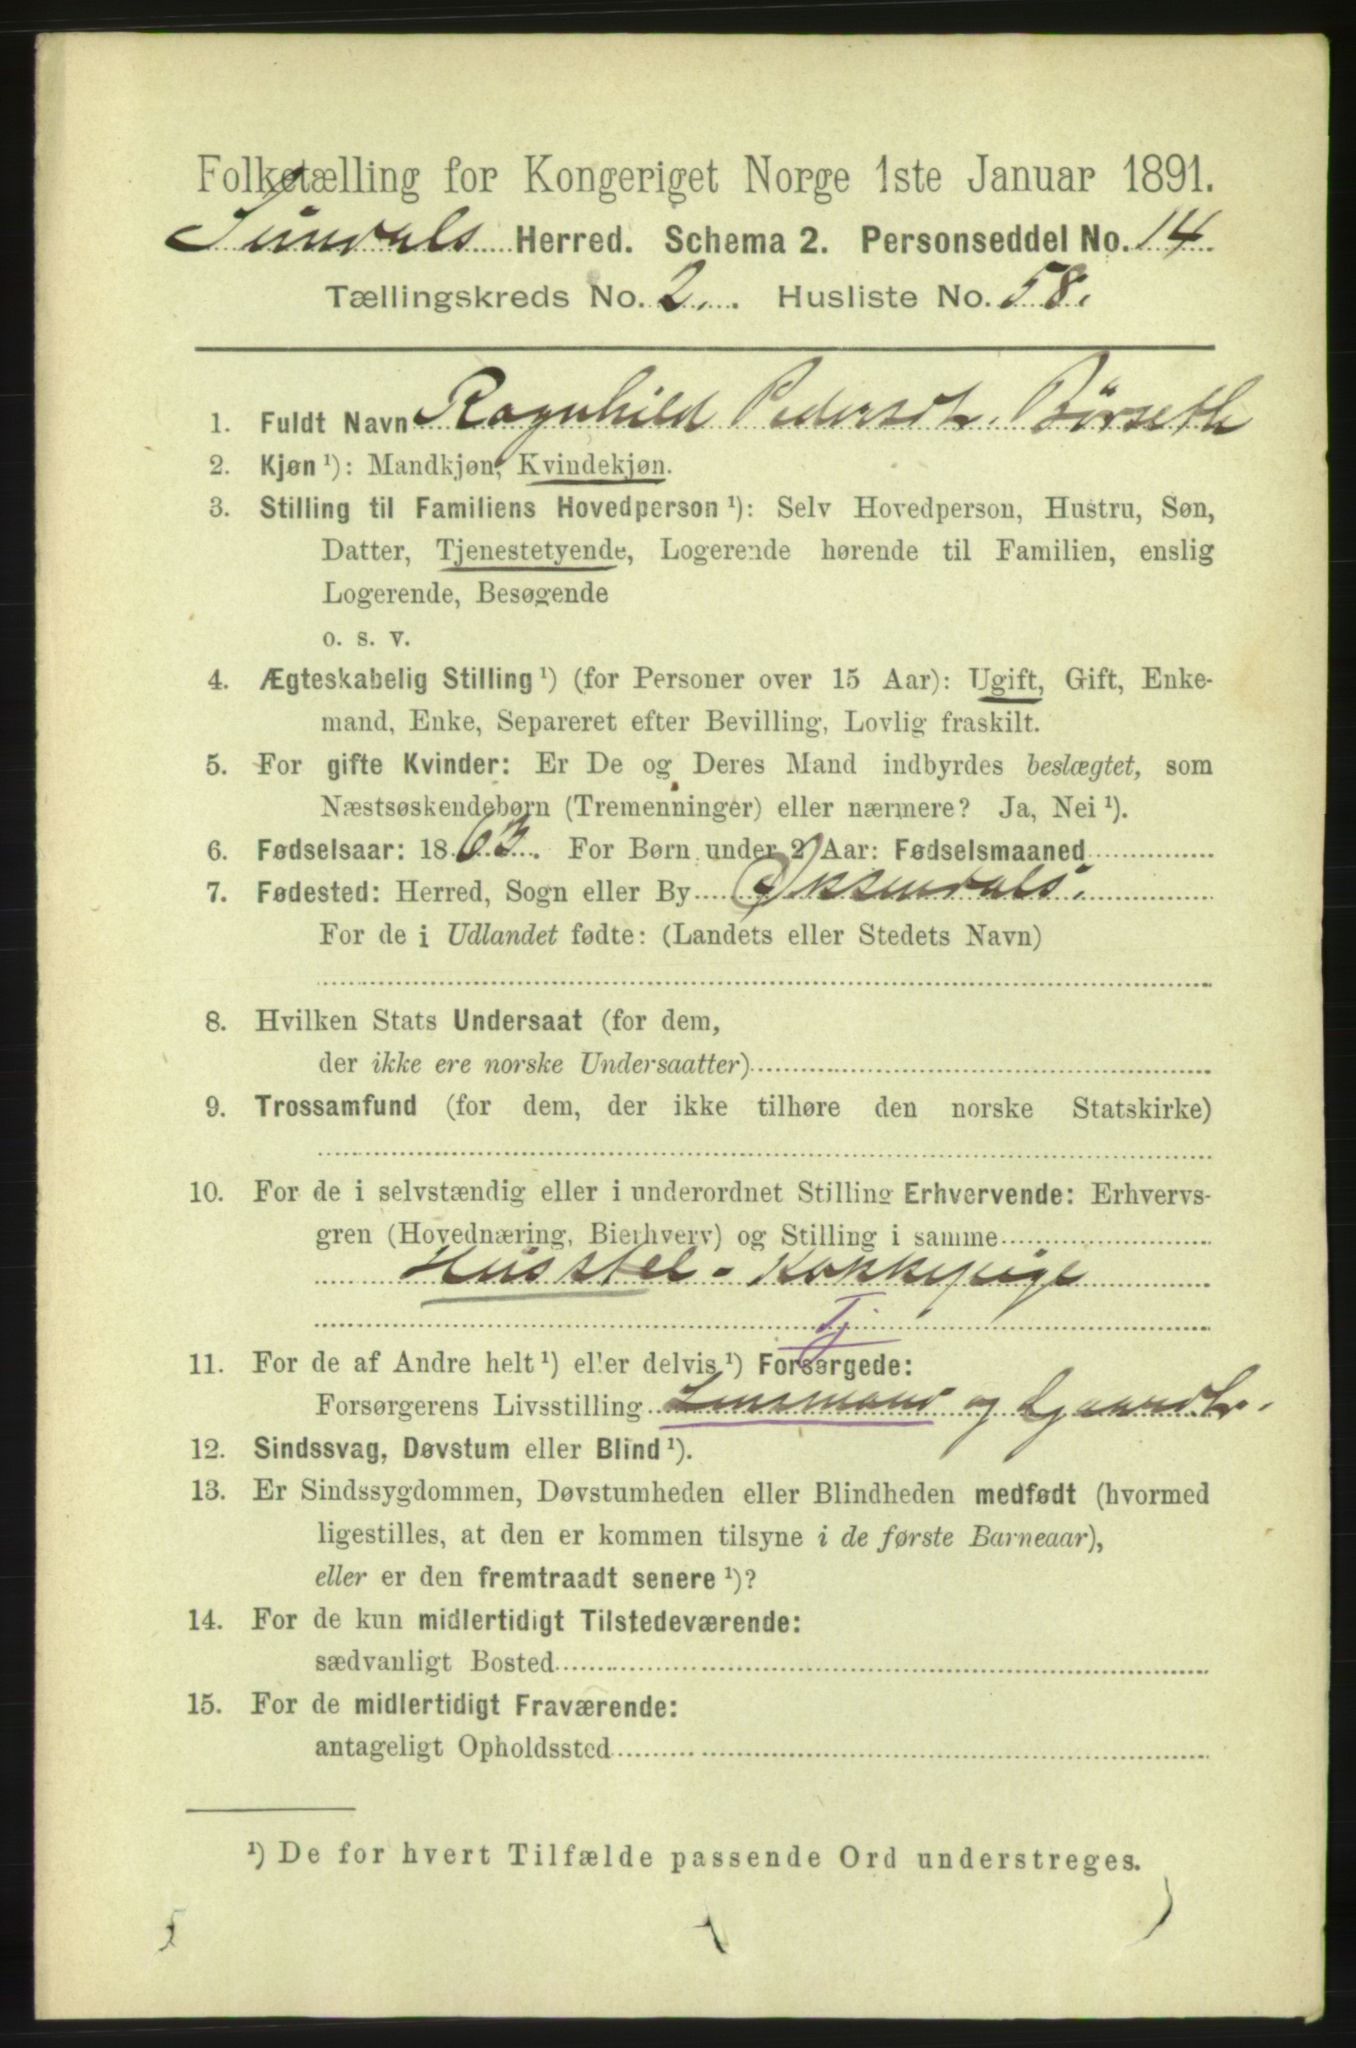 Folketælling for Kongeriget Norge 1ste Januar 1891.
Sundals Herred. Schema 2. Personseddel No. 14
Tællingskreds No. 2. Husliste No. 58.
1. Fuldt Navn Ragnhild Pedersdtr. Börseth
2. Kjøn ¹): Mandkjøn, Kvindekjøn.
3. Stilling til Familiens Hovedperson ¹): Selv Hovedperson, Hustru, Søn,
Datter, Tjenestetyende, Logerende hørende til Familien, enslig
Logerende, Besøgende
o. s. v.
4. Ægteskabelig Stilling ¹) (for Personer over 15 Aar): Ugift, Gift, Enke-
mand, Enke, Separeret efter Bevilling, Lovlig fraskilt.
5. For gifte Kvinder: Er De og Deres Mand indbyrdes beslægtet, som
Næstsøskendebørn (Tremenninger) eller nærmere? Ja, Nei ¹).
6. Fødselsaar: 1863. For Børn under 2 Aar: Fødselsmaaned
7. Fødested: Herred, Sogn eller By Øksendals.
For de i Udlandet fødte: (Landets eller Stedets Navn)
8. Hvilken Stats Undersaat (for dem,
der ikke ere norske Undersaatter)
9. Trossamfund (for dem, der ikke tilhøre den norske Statskirke)
10. For de i selvstændig eller i underordnet Stilling Erhvervende: Erhvervs-
gren (Hovednæring, Bierhverv) og Stilling i samme
Husstel - Kokkepige
Tj
11. For de af Andre helt ¹) eller delvis ¹) Forsørgede:
Forsørgerens Livsstilling Lensmand og Gaardbr.
12. Sindssvag, Døvstum eller Blind ¹).
13. Er Sindssygdommen, Døvstumheden eller Blindheden medfødt (hvormed
ligestilles, at den er kommen tilsyne i de første Barneaar),
eller er den fremtraadt senere ¹)?
14. For de kun midlertidigt Tilstedeværende:
sædvanligt Bosted
15. For de midlertidigt Fraværende:
antageligt Opholdssted
¹) De for hvert Tilfælde passende Ord understreges.